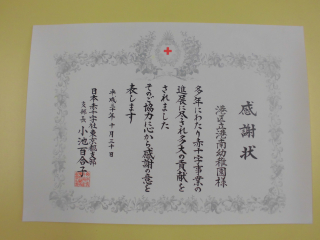 感謝状
港区立港南幼稚園様
多年にわたり赤十字事業の
進展に尽され多大の貢献を
されました
そのご協力に心から感謝の意を
表します
平成三十年十月三十日
日本赤十字社東京都支部
支部長 小池百合子